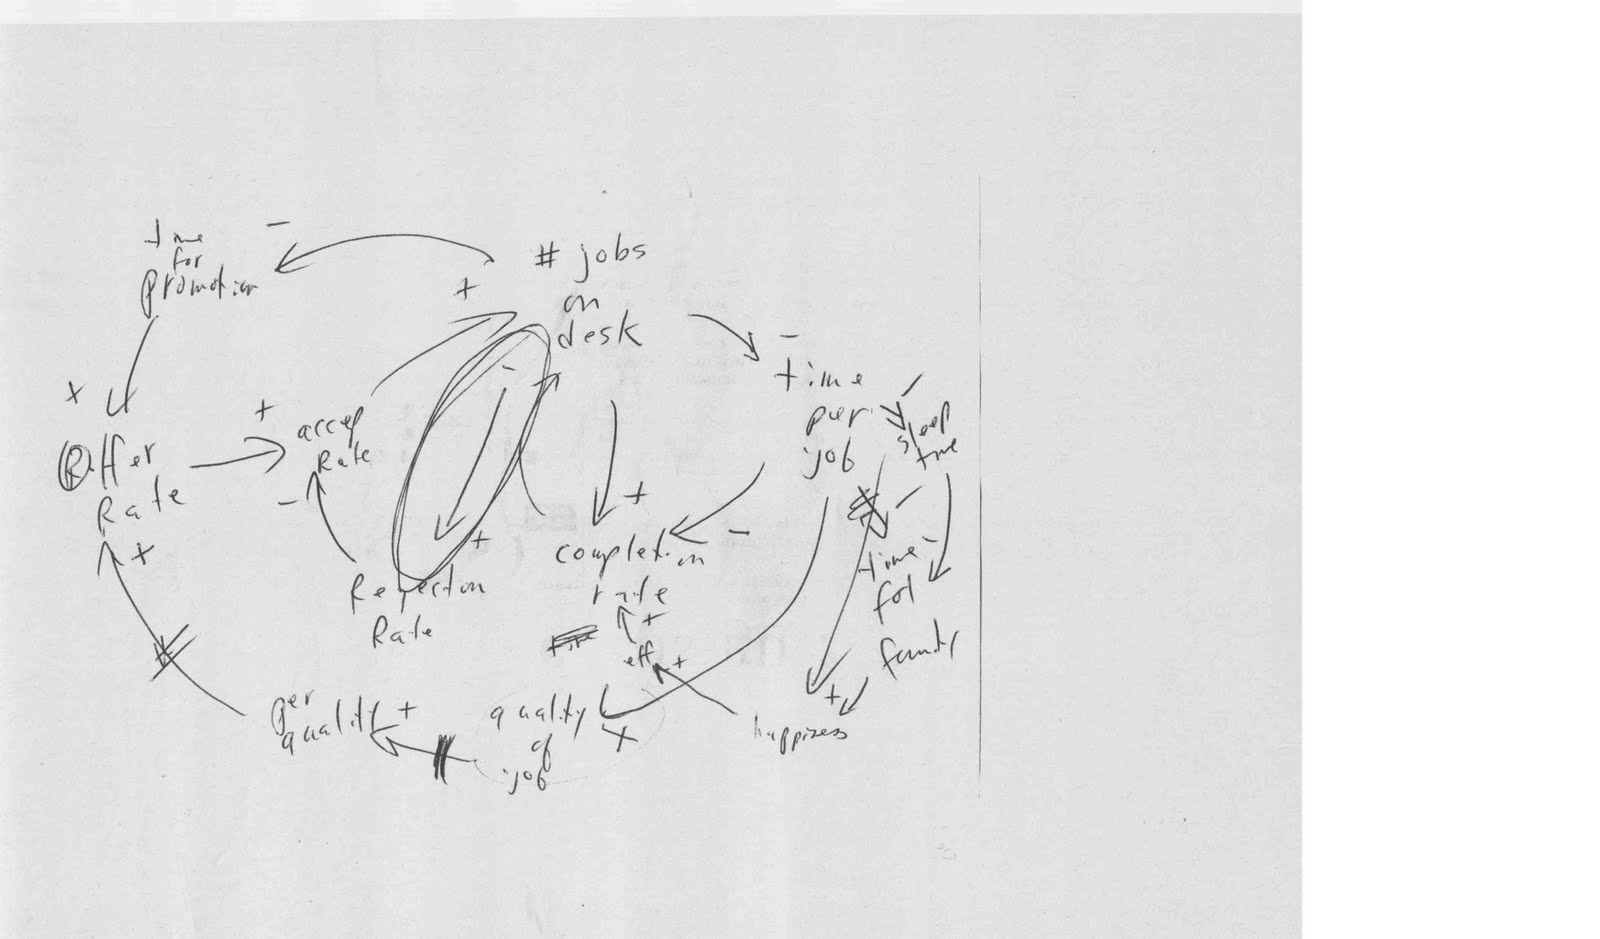 time
for
promotion
-
# jobs
on
desk
+
-
time
per
job
-
sleep
time
+
Offer
Rate
+
+
accep
Rate
-
-
+
Rejection
Rate
+
completion
rate
-
+
eff
+
-
time
for
family
-
+
happiness
per
quality
+
quality
of
job
+